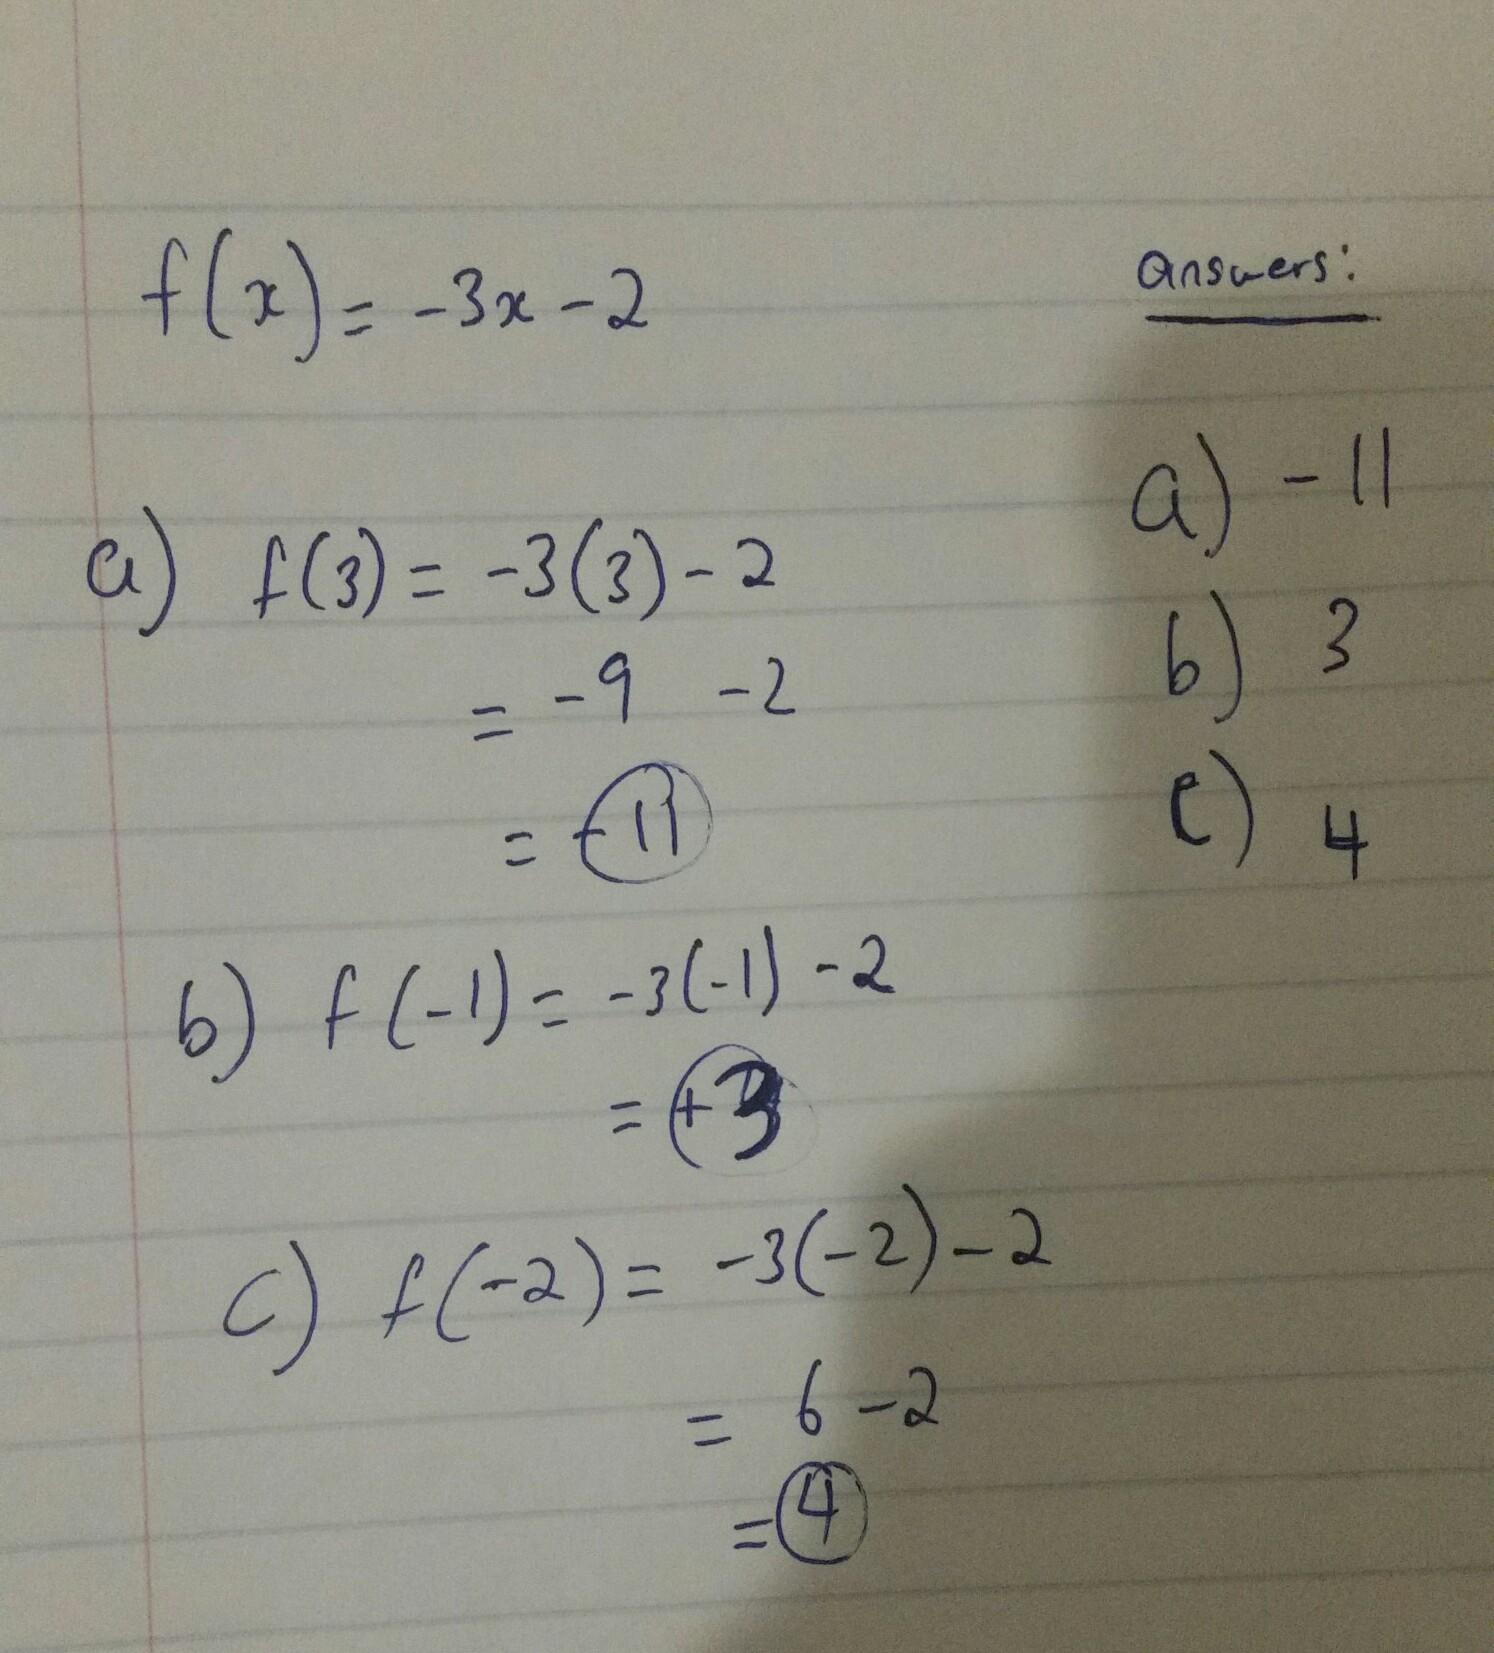 f(x) = -3x - 2
a) f(3) = -3(3) - 2
= -9 -2
= -11
b) f(-1) = -3(-1) - 2
= +3
c) f(-2) = -3(-2) - 2
= 6 - 2
= 4
Answers:
a) -11
b) 3
c) 4